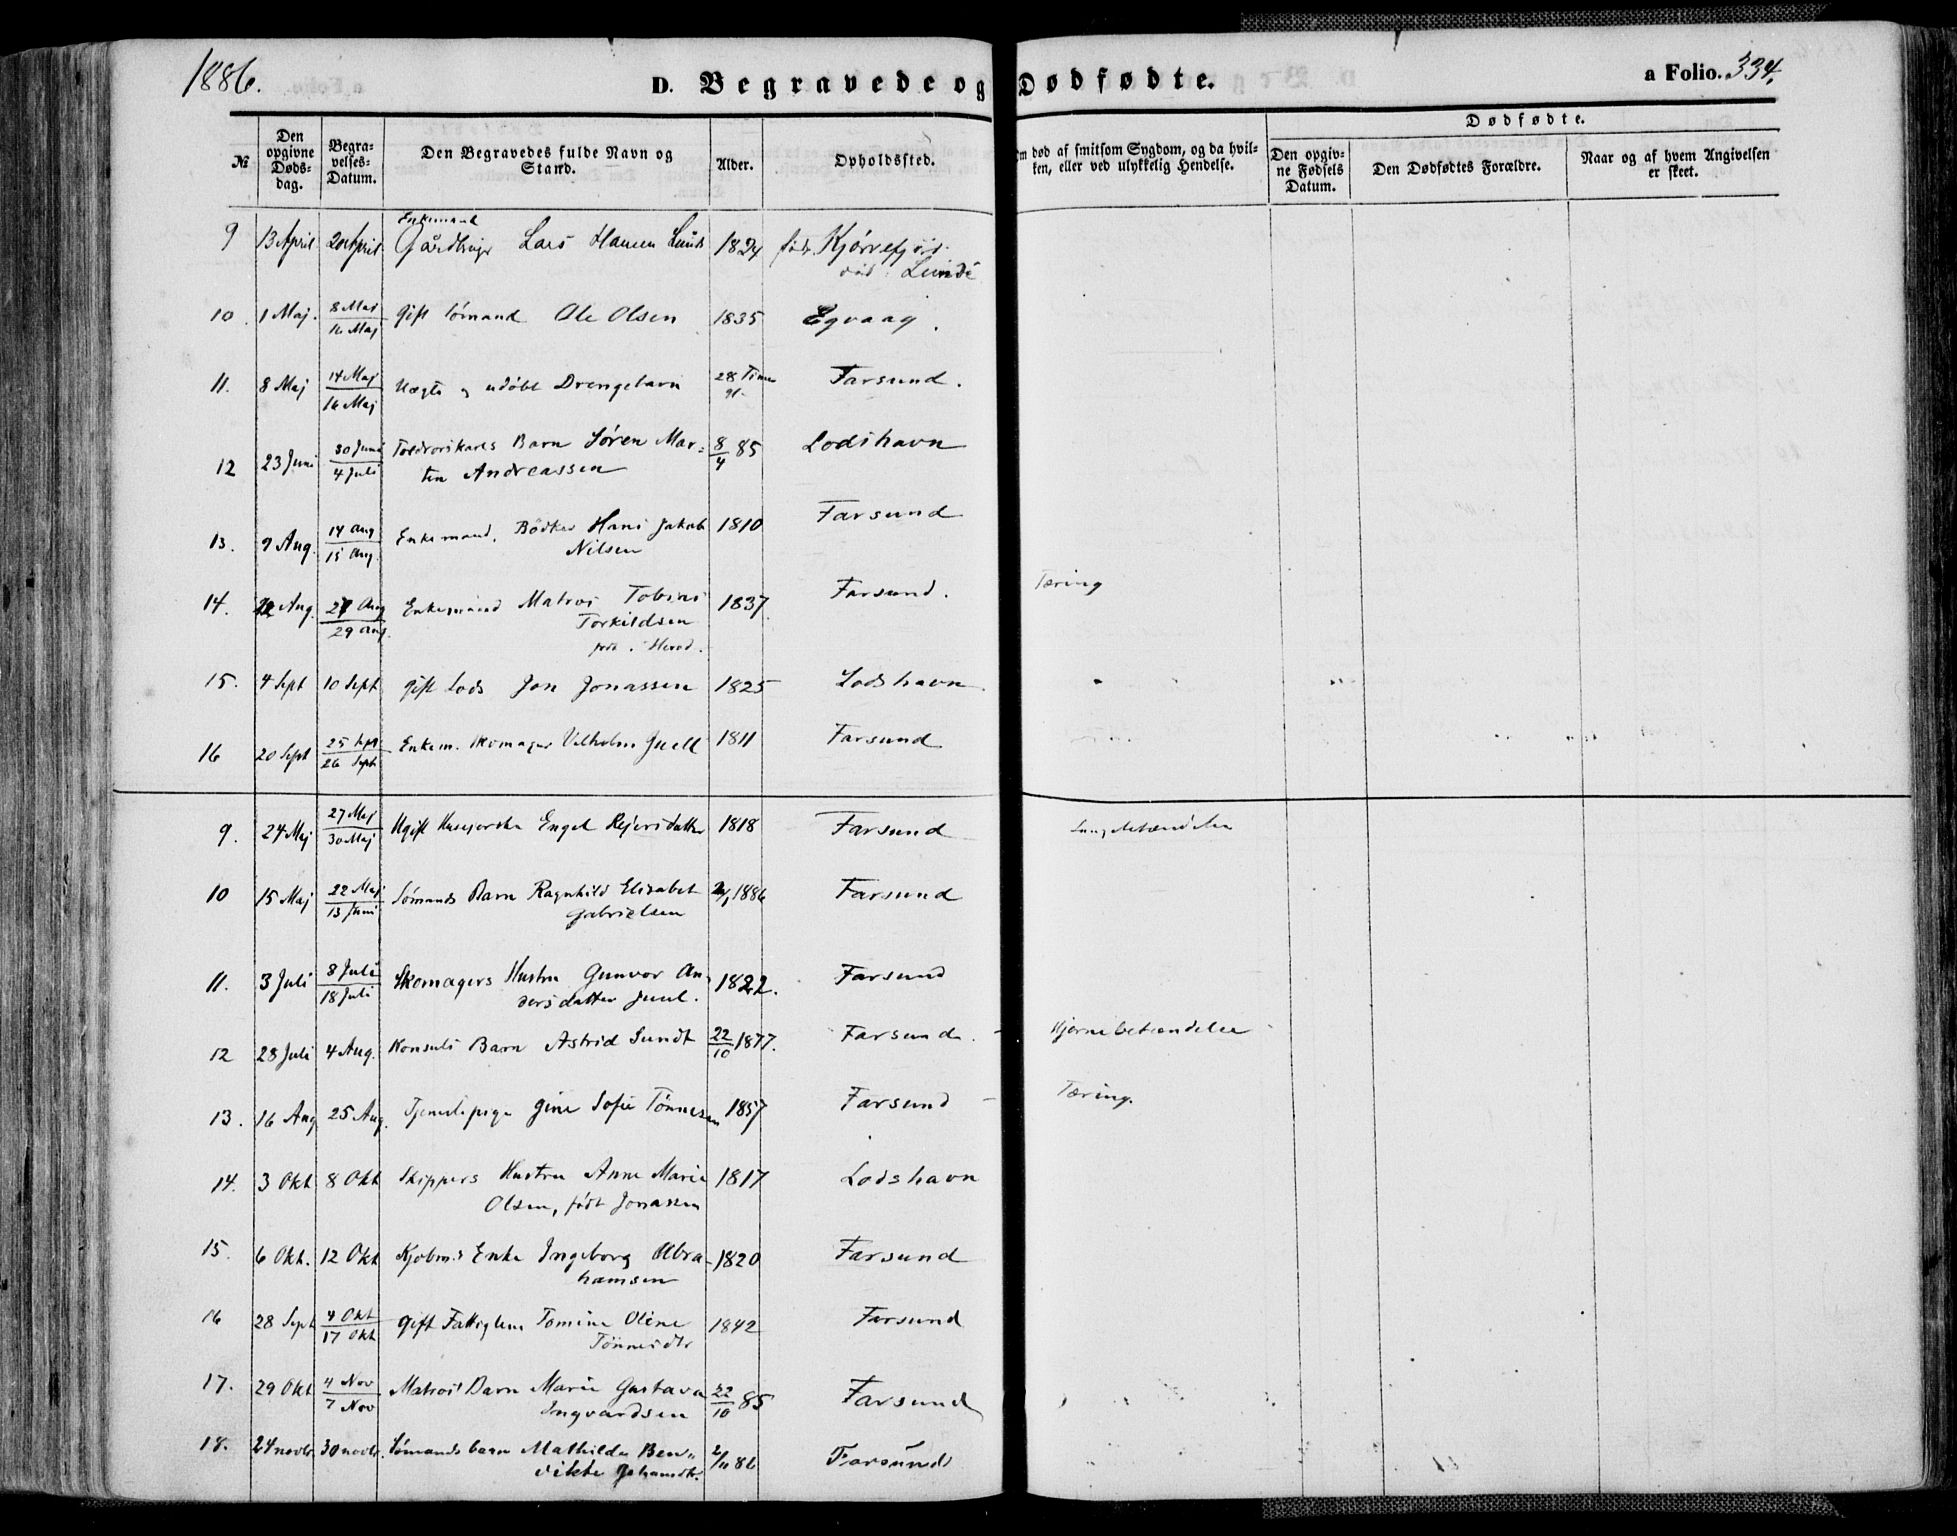 1886.
D. Begravede og Dødfødte.
a Folio. 334.
№ Den opgivne Døds-dag. Begra-velses-Datum. Den Begravedes fulde Navn og Stand. Alder. Opholdssted. Om død af smitsom Sygdom, og da hvil-ken, eller ved ulykkelig Hendelse. Dødfødte.
Den opgiv-ne Fødsels Datum. Den Dødfødtes Forældre. Naar og af hvem Angivelsen er skeet.
Enkemand
9 13 April 20 April Gårdbruger Lars Hansen Lunde 1824 født Kjørrefjord
død: Lunde
10. 1 Maj. 8 Maj Gift Sømand Ole Olsen 1835 Egvaag.
16 Maj
11. 8 Maj 14 Maj Uægte og udøbt Drengebarn 28 Timer Farsund.
16 Maj gl.
12 23 Juni 30 Juni Toldrorskarls Barn Søren Mar= 8/4 85 Lodshavn
4 Juli tin Andreassen
13. 9 Aug. 14 Aug Enkemand, Bødker Hans Jakob 1810 Farsund
15 Aug. Nilsen
14. 22 Aug. 27 Aug Enkemand Matros Tobias 1837 Farsund. Tæring
29 Aug. Torkildsen
født i Herad.
15. 4 Sept 10 Sept Gift Lods Jon Jonassen 1825 Lodshavn
16 20 Sept 25 Sept Enkem. Skomager Vilhelm Juell 1811 Farsund
26 Sept
9. 24 Maj 27 Maj Ugift Huseierske Engel Rejersdatter 1818 Farsund Lungebetændelse
30 Maj
10 15 Maj 22 Maj Sømands Barn Ragnhild Elisabet 1886 Farsund
13 Juni Gabrielsen
11. 3 Juli 8 Juli Skomagers Hustru Gunvor An 1822. Farsund
18 Juli dersdatter Juul.
12 28 Juli 4 Aug. Konsuls Barn Astrid Sundt 22/10 1877. Farsund. Hjernebetændelse
13. 16 Aug 25 Aug. Tjenestepige Gine Sofie Tønnesen 1857 Farsund Tæring.
14. 3 Okt 8 Okt Skippers Hustru Anne Marie 1817 Lodshavn
Olsen, født Jonassen
15. 6 Okt. 12 Okt Kjøbm.s Enke Ingeborg Abra- 1820 Farsund
hamsen
16 28 Sept 4 Okt Gift Fattiglem Tomine Oline 1842 Farsund
17 Okt Tønnesdtr
17. 29 Okt 4 Nov Matros' Barn Marie Gustava 22/10 85 Farsund
7 Nov Ingvardsen
18. 24 novbr. 30 novbr. Sømands barn Mathilde Ben„ 2/11 86 Farsund
dikte Johansdtr.